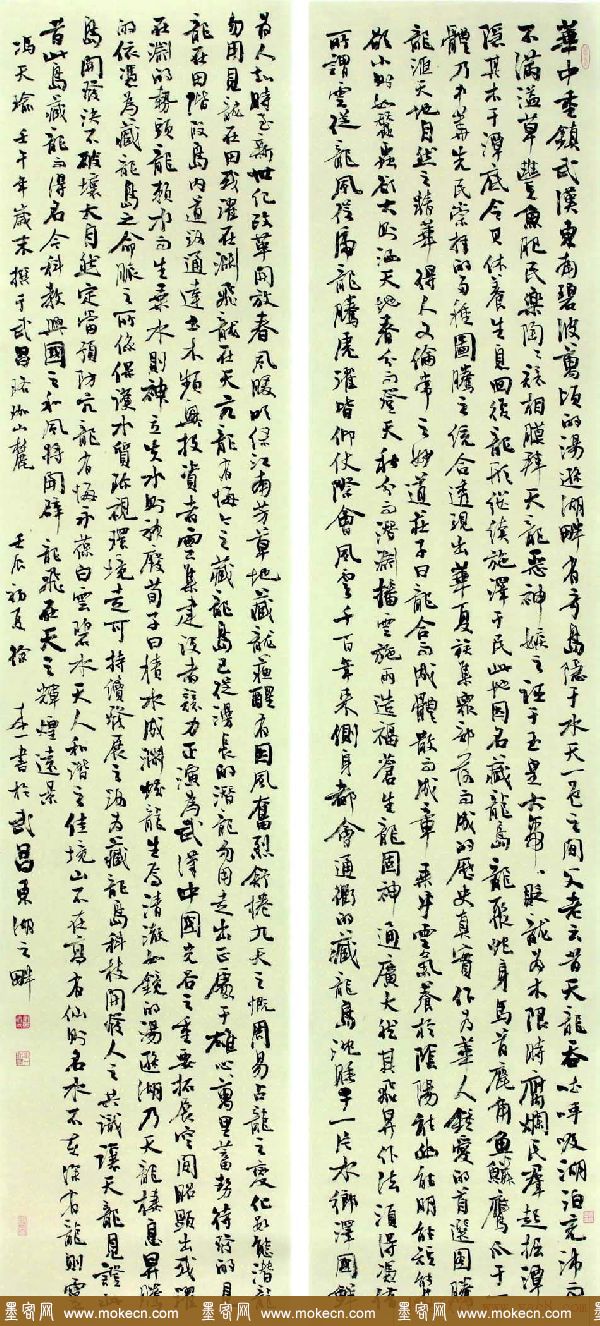 華中重鎮武漢東南碧波萬頃的湯遜湖畔有奇島隱于水天一色之間父老云昔天龍吞吐呼吸湖泊充沛而
不滿溢草豐魚肥民樂陶陶競相膜拜天龍惡神嫉之誣于玉皇大帝貶龍為木限時腐爛民羣起掘潭
隱其木于潭底令其休養生息回復龍形從續施澤于民此地因名藏龍島龍聚蛇身馬首鹿角魚鱗鷹爪于一
體乃中華先民崇拜的多種圖騰之綜合透現出華夏族集眾部落而成的歷史真實作為華人鍾愛的首選圖騰
龍匯天地自然之精華得人文倫常之妙道莊子曰龍合而成體散而成章乘乎雲氣養於陰陽能幽能明能短能
欲小則如蠶蟲欲大則涵天地春分而登天秋分而潛淵播雲施雨造福蒼生龍固神通廣大然其飛昇作法須得憑借
所謂雲從龍風從虎龍騰虎躍皆仰仗際會風雲千百年來側身都會通衢的藏龍島沈睡于一片水鄉澤國
省人知時至新世紀改革開放春風暖以綠江南芳草地藏龍甦醒有因風奮烈舒捲九天之慨周易占龍之變化和能潛龍
勿用見龍在田或躍在淵飛龍在天亢龍有悔今之藏龍島已從漫長的潛龍勿用走出正處于雄心萬里蓄勢待發的見
龍在田階段島内道路通達土木頻興投資者雲集建設者競力正演為武漢中國光谷之重要拓展空間昭顯出或躍
在淵的勢頭龍賴水而生乘水則神立失水則神廢荀子曰積水成淵蛟龍生焉清澈如鏡的湯遜湖乃天龍棲息昇騰
的依憑為藏龍島之命脈之所係保護水質珍視環境走可持續發展之路為藏龍島科技開發人之共識讓天龍見證此
島開發決不破壞大自然定當預防亢龍有悔永葆白雲碧水天人和諧之佳境山不在高有仙則名水不在深有龍則靈
昔此島藏龍而得名今科教興國之和風將開辟龍飛在天之輝煌遠景
馮天瑜壬午年歲末撰于武昌珞珈山麓 壬辰初夏徐本一書於武昌東湖之畔
墨客网 www.mokecn.com 墨客网 www.mokecn.com 墨客网 www.mokecn.com